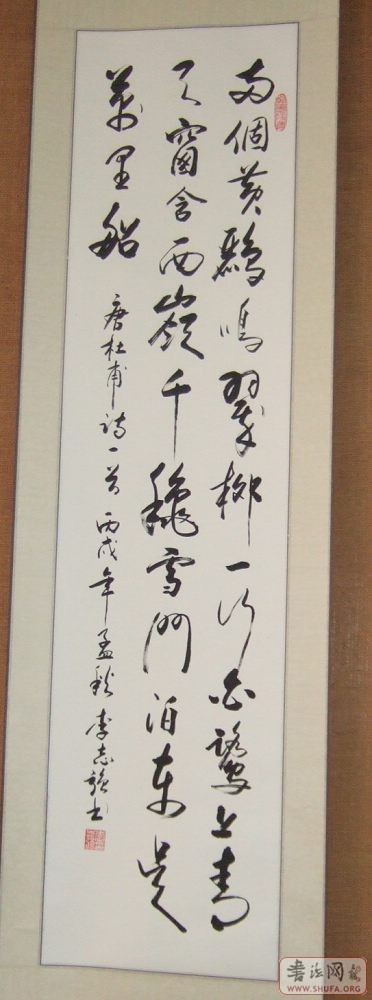 两個黄鸝鳴翠柳一行白鷺上青
天窗含西嶺千穐雪門泊東吴
萬里船
唐杜甫诗一首 丙戌年孟秋 李志強书
書法网
WWW.SHUFA.ORG